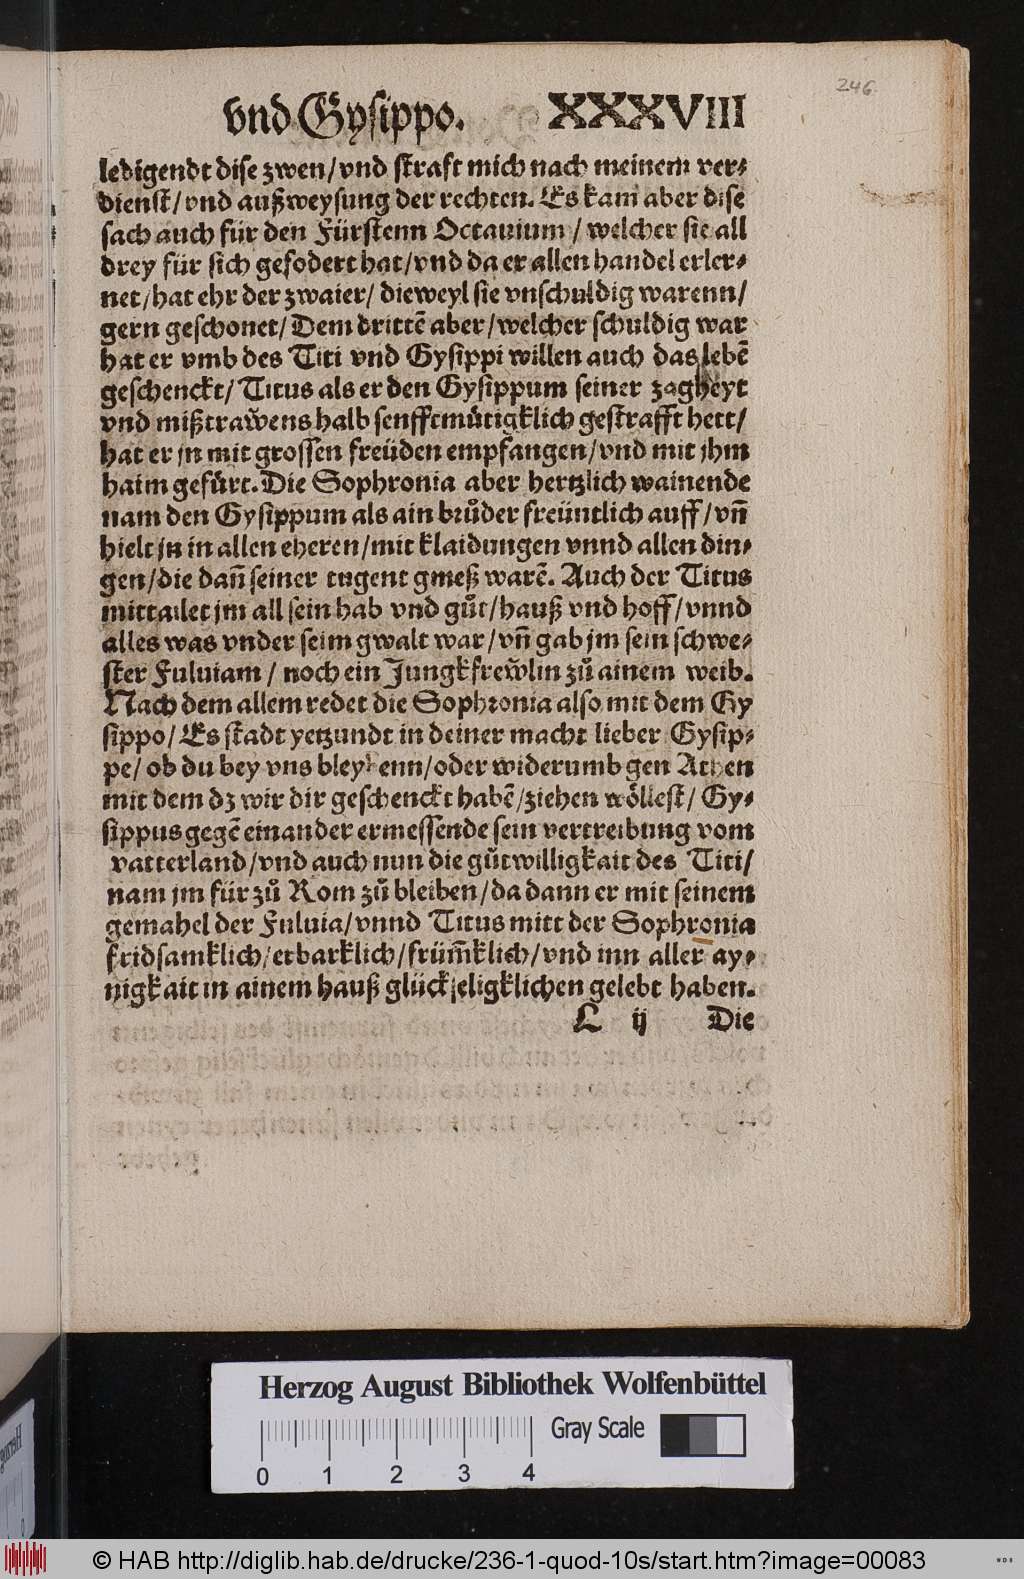 246
vnd Gysippo. XXXVIII
ledigendt dise zwen/vnd straft mich nach meinem ver⸗
dienst/vnd außweysung der rechten. Es kam aber dise
sach auch für den Fürstenn Octauium/ welcher sie all
drey für sich gefodert hat/vnd da er allen handel erler⸗
net/hat ehr der zwaier/ dieweyl sie vnschuldig warenn/
gern geschonet/ Dem drittē aber/welcher schuldig war
hat er vmb des Titi vnd Gysippi willen auch das lebē
geschenckt/ Titus als er den Gysippum seiner zagheyt
vnd mißtrawens halb senfftmuͤtigklich gestrafft hett/
hat er jn mit grossen freüden empfangen/vnd mit jhm
haim gefuͤrt. Die Sophronia aber hertzlich wainende
nam den Gysippum als ain bruͦder freüntlich auff/vñ
hielt jn in allen eheren/mit klaidungen vnnd allen din⸗
gen/die dañ seiner tugent gmeß warē. Auch der Titus
mittailet jm all sein hab vnd guͦt/hauß vnd hoff/vnnd
alles was vnder seim gwalt war/vñ gab jm sein schwe⸗
ster Fuluiam/ noch ein Jungkfrewlin zuͦ ainem weib.
Nach dem allem redet die Sophronia also mit dem Gy
sippo/ Es stadt yetzundt in deiner macht lieber Gysip⸗
pe/ ob du bey vns bleybenn/oder widerumb gen Athen
mit dem dz wir dir geschenckt habē/ziehen woͤllest/ Gy⸗
sippus gegē einander ermessende sein vertreibung vom
vatterland/vnd auch nun die guͦtwilligkait des Titi/
nam jm für zuͦ Rom zuͦ bleiben/da dann er mit seinem
gemahel der Fuluia/vnnd Titus mitt der Sophronia
fridsamklich/erbarklich/früm̃klich/vnd inn aller ay⸗
nigkait in ainem hauß glückseligklichen gelebt haben.
L ij Die
Herzog August Bibliothek Wolfenbüttel
Gray Scale
0 1 2 3 4
© HAB http://diglib.hab.de/drucke/236-1-quod-10s/start.htm?image=00083